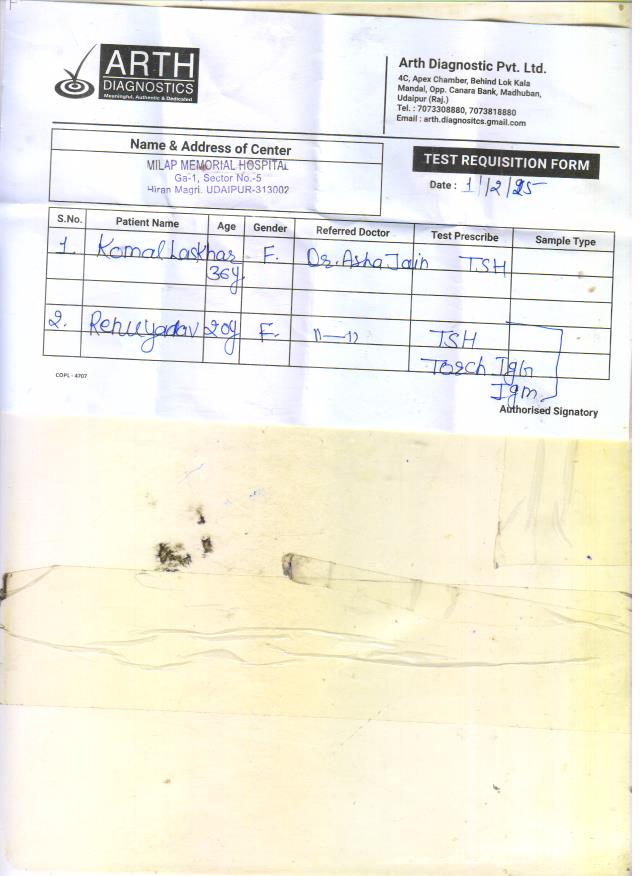 ARTH
DIAGNOSTICS
Meaningful, Authentic & Dedicated
Arth Diagnostic Pvt. Ltd.
4C, Apex Chamber, Behind Lok Kala
Mandal, Opp. Canara Bank, Madhuban,
Udaipur (Raj.)
Tel. : 7073308880, 7073818880
Email : arth.diagnositcs.gmail.com
Name & Address of Center
MILAP MEMORIAL HOSPITAL
Ga-1, Sector No.-5
Hiran Magri. UDAIPUR-313002
TEST REQUISITION FORM
Date : 1/2/25
S.No. Patient Name Age Gender Referred Doctor Test Prescribe Sample Type
1. Komal Laskhar 36y. F. Dr. Asha Jain TSH
2. Renu yadav 20y F. 11—11 TSH
Torch IgG
Igm.
COPL - 4707
Authorised Signatory